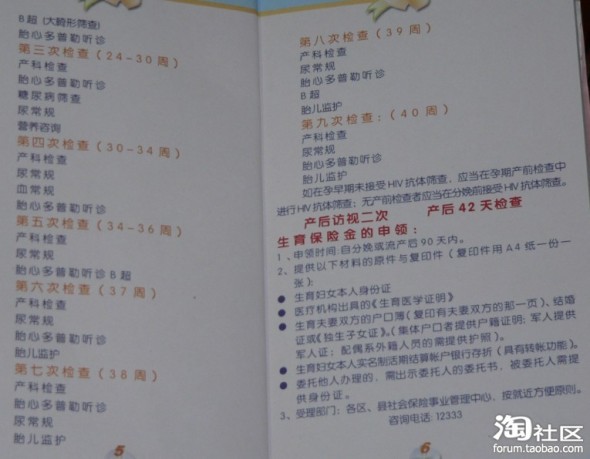 B超 (大畸形筛查)
胎心多普勒听诊
第三次检查 (24-30周)
产科检查
胎心多普勒听诊
糖尿病筛查
尿常规
营养咨询
第四次检查 (30-34周)
产科检查
尿常规
血常规
胎心多普勒听诊
第五次检查 (34-36周)
产科检查
尿常规
胎心多普勒听诊B超
第六次检查 (37周)
产科检查
尿常规
胎心多普勒听诊
胎儿监护
第七次检查 (38周)
产科检查
胎心多普勒听诊
尿常规
胎儿监护
5
第八次检查 (39周)
产科检查
尿常规
胎心多普勒听诊
B超
胎儿监护
第九次检查: (40周)
产科检查
尿常规
胎心多普勒听诊
胎儿监护
如在孕早期未接受HIV抗体筛查, 应当在孕期产前检查中
进行HIV抗体筛查; 无产前检查者应当在分娩前接受HIV抗体筛查。
产后访视二次 产后42天检查
生育保险金的申领:
1、申领时间:自分娩或流产后90天内。
2、提供以下材料的原件与复印件 (复印件用A4纸一份一
张):
● 生育妇女本人身份证
● 医疗机构出具的《生育医学证明》
● 生育夫妻双方的户口簿(复印有夫妻双方的那一页)、结婚
证或《独生子女证》。(集体户口者提供户籍证明; 军人提供
军人证; 配偶系外籍人员的需提供护照)。
● 生育妇女本人实名制活期结算帐户银行存折 (具有转帐功能)。
● 委托他人办理的, 需出示委托人的委托书, 被委托人需提
供身份证。
3、受理部门: 各区、县社会保险事业管理中心, 按就近方便原则。
咨询电话: 12333
6
淘社区
forum.taobao.com